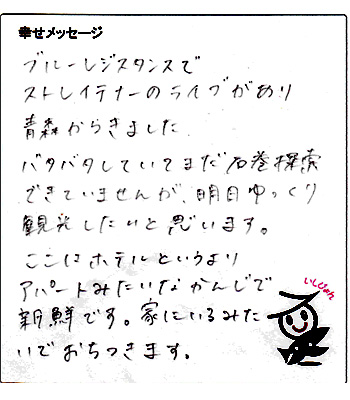 幸せメッセージ
ブルーレジスタンスで
ストレイテナーのライブがあり
青森からきました
バタバタしていてまだ石巻探索
できていませんが、明日ゆっくり
観光したいと思います。
ここはホテルというより
アパートみたいなかんじで
新鮮です。家にいるみた
いでおちつきます。
いしぴょん